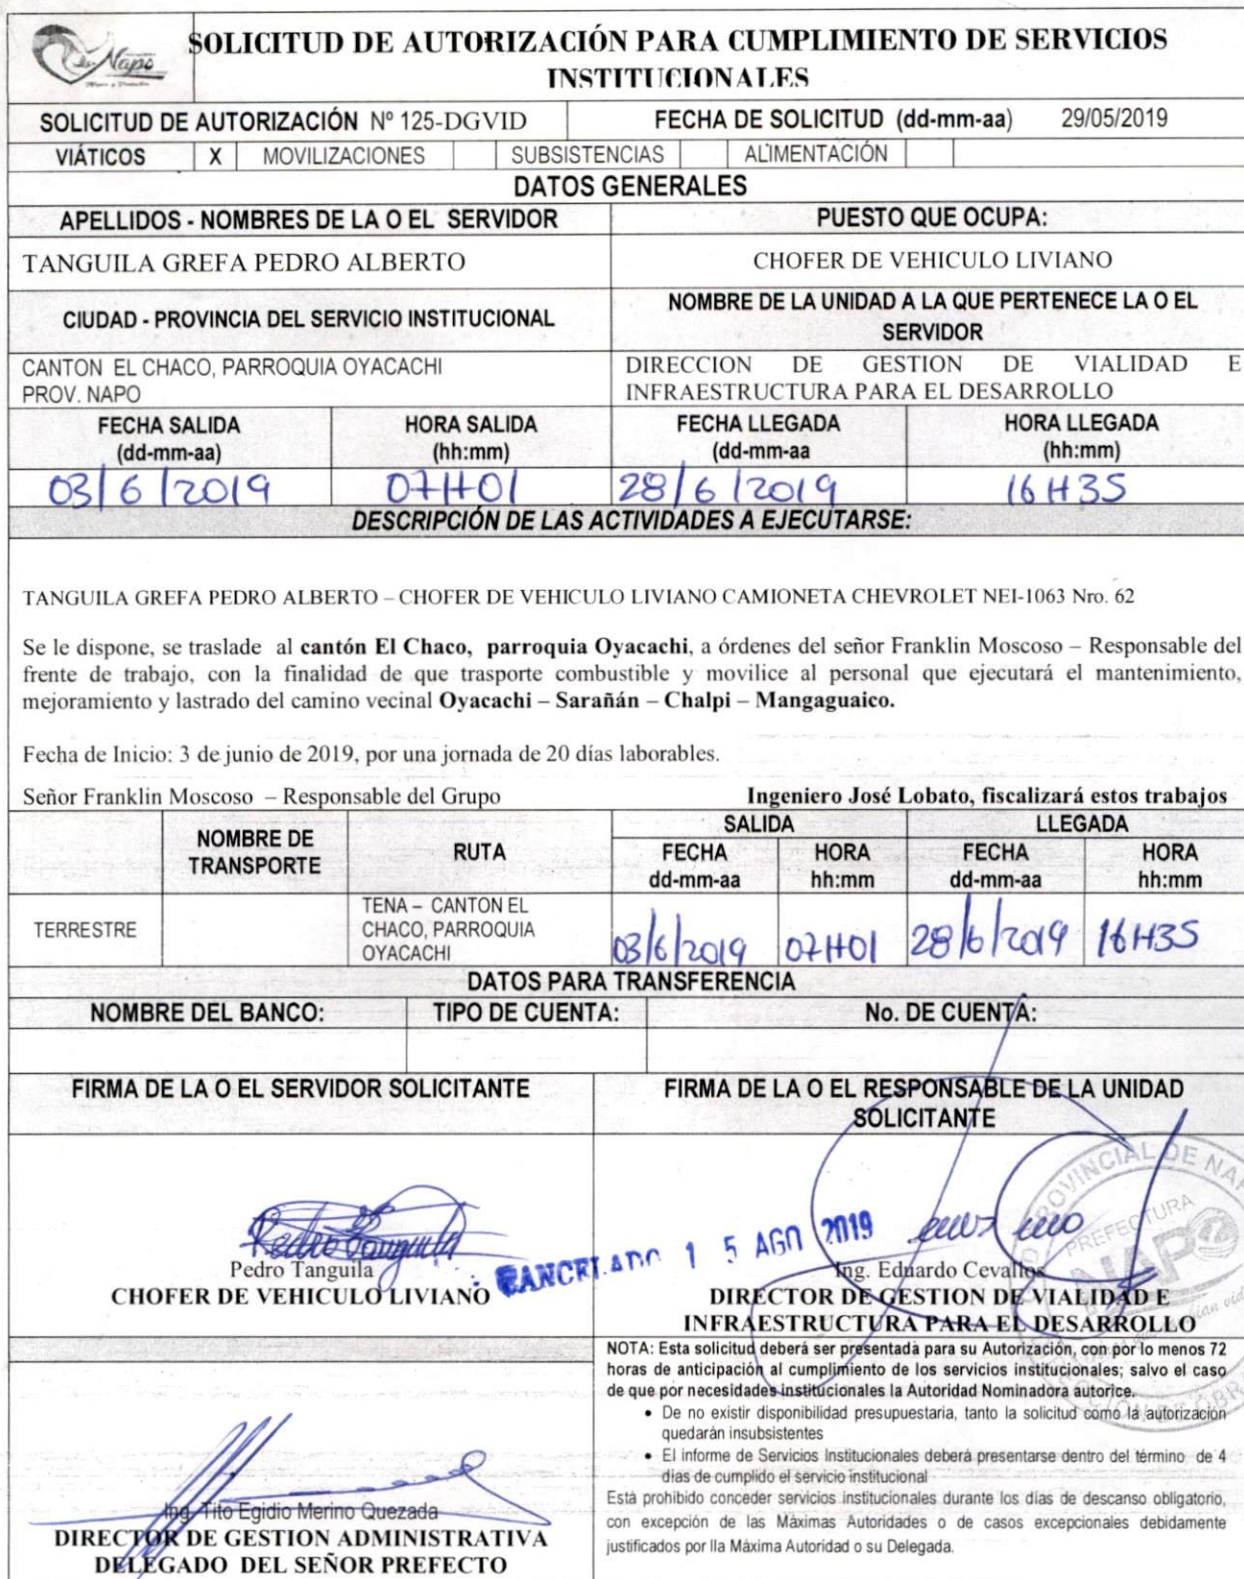 SOLICITUD DE AUTORIZACIÓN PARA CUMPLIMIENTO DE SERVICIOS
INSTITUCIONALES
Napo
SOLICITUD DE AUTORIZACIÓN Nº 125-DGVID FECHA DE SOLICITUD (dd-mm-aa) 29/05/2019
VIÁTICOS X MOVILIZACIONES SUBSISTENCIAS ALIMENTACIÓN
DATOS GENERALES
APELLIDOS - NOMBRES DE LA O EL SERVIDOR PUESTO QUE OCUPA:
TANGUILA GREFA PEDRO ALBERTO CHOFER DE VEHICULO LIVIANO
CIUDAD - PROVINCIA DEL SERVICIO INSTITUCIONAL NOMBRE DE LA UNIDAD A LA QUE PERTENECE LA O EL
SERVIDOR
CANTON EL CHACO, PARROQUIA OYACACHI
PROV. NAPO
DIRECCION DE GESTION DE VIALIDAD E
INFRAESTRUCTURA PARA EL DESARROLLO
FECHA SALIDA HORA SALIDA FECHA LLEGADA HORA LLEGADA
(dd-mm-aa) (hh:mm) (dd-mm-aa (hh:mm)
03/6/2019 07H01 28/6/2019 16H35
DESCRIPCIÓN DE LAS ACTIVIDADES A EJECUTARSE:
TANGUILA GREFA PEDRO ALBERTO – CHOFER DE VEHICULO LIVIANO CAMIONETA CHEVROLET NEI-1063 Nro. 62
Se le dispone, se traslade al cantón El Chaco, parroquia Oyacachi, a órdenes del señor Franklin Moscoso – Responsable del
frente de trabajo, con la finalidad de que trasporte combustible y movilice al personal que ejecutará el mantenimiento,
mejoramiento y lastrado del camino vecinal Oyacachi – Sarañán – Chalpi – Mangaguaico.
Fecha de Inicio: 3 de junio de 2019, por una jornada de 20 días laborables.
Señor Franklin Moscoso – Responsable del Grupo Ingeniero José Lobato, fiscalizará estos trabajos
NOMBRE DE
TRANSPORTE
RUTA
SALIDA LLEGADA
FECHA HORA FECHA HORA
dd-mm-aa hh:mm dd-mm-aa hh:mm
TERRESTRE
TENA – CANTON EL
CHACO, PARROQUIA
OYACACHI
03/6/2019 07H01 28/6/2019 16H35
DATOS PARA TRANSFERENCIA
NOMBRE DEL BANCO: TIPO DE CUENTA: No. DE CUENTA:
FIRMA DE LA O EL SERVIDOR SOLICITANTE FIRMA DE LA O EL RESPONSABLE DE LA UNIDAD
SOLICITANTE
Pedro Tanguila
CANCELADO 15 AGO 2019
PROVINCIAL DE NAPO
PREFECTURA
NAPO
Pedro Tanguila
CHOFER DE VEHICULO LIVIANO
Ing. Eduardo Cevallos
DIRECTOR DE GESTION DE VIALIDAD E
INFRAESTRUCTURA PARA EL DESARROLLO
NOTA: Esta solicitud deberá ser presentada para su Autorización, con por lo menos 72
horas de anticipación al cumplimiento de los servicios institucionales; salvo el caso
de que por necesidades institucionales la Autoridad Nominadora autorice.
• De no existir disponibilidad presupuestaria, tanto la solicitud como la autorización
quedarán insubsistentes
• El informe de Servicios Institucionales deberá presentarse dentro del término de 4
días de cumplido el servicio institucional
Está prohibido conceder servicios institucionales durante los días de descanso obligatorio,
con excepción de las Máximas Autoridades o de casos excepcionales debidamente
justificados por lla Máxima Autoridad o su Delegada.
Ing. Tito Egidio Merino Quezada
DIRECTOR DE GESTION ADMINISTRATIVA
DELEGADO DEL SEÑOR PREFECTO